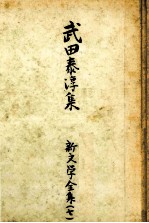 武田泰淳集
新文学全集(七)